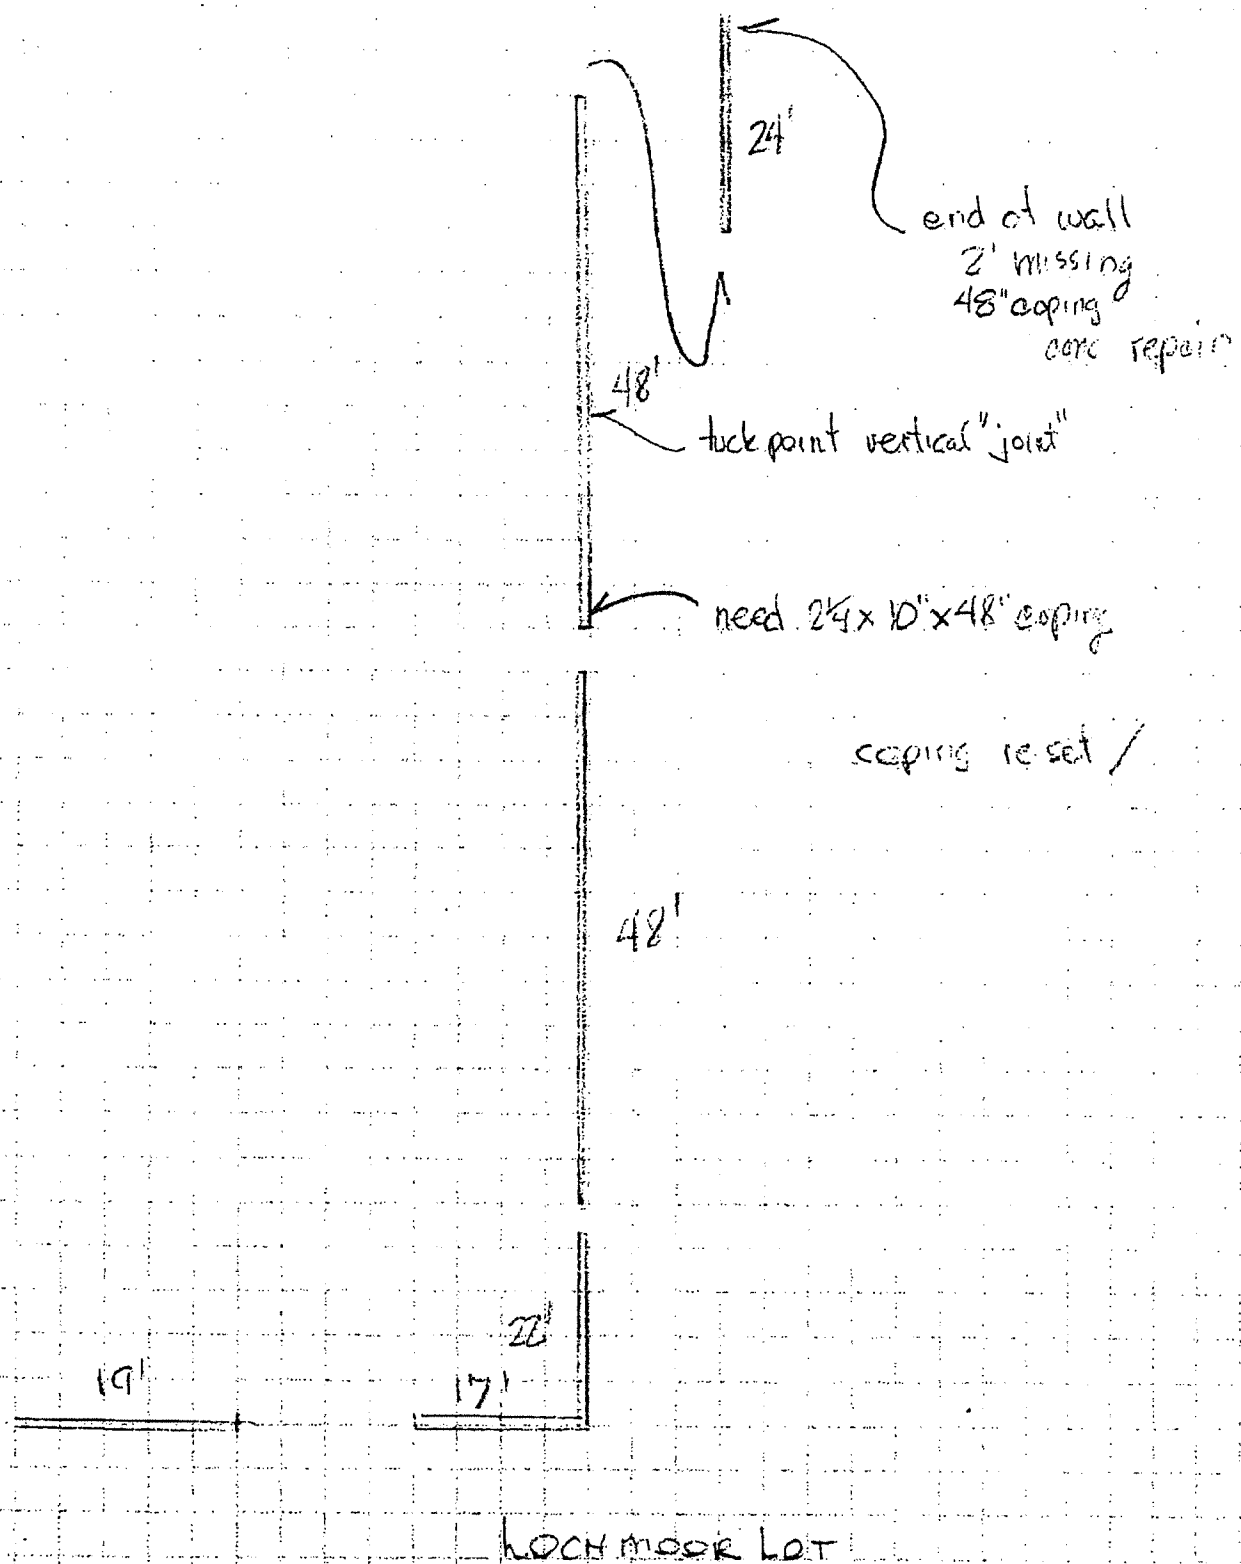 24'
end of wall
2' missing
48" coping
conc repair
48'
tuck point vertical "joint"
need 2¼ x 10" x 48" coping
coping re set /
48'
22'
19'
17'
LOCHMOOR LOT